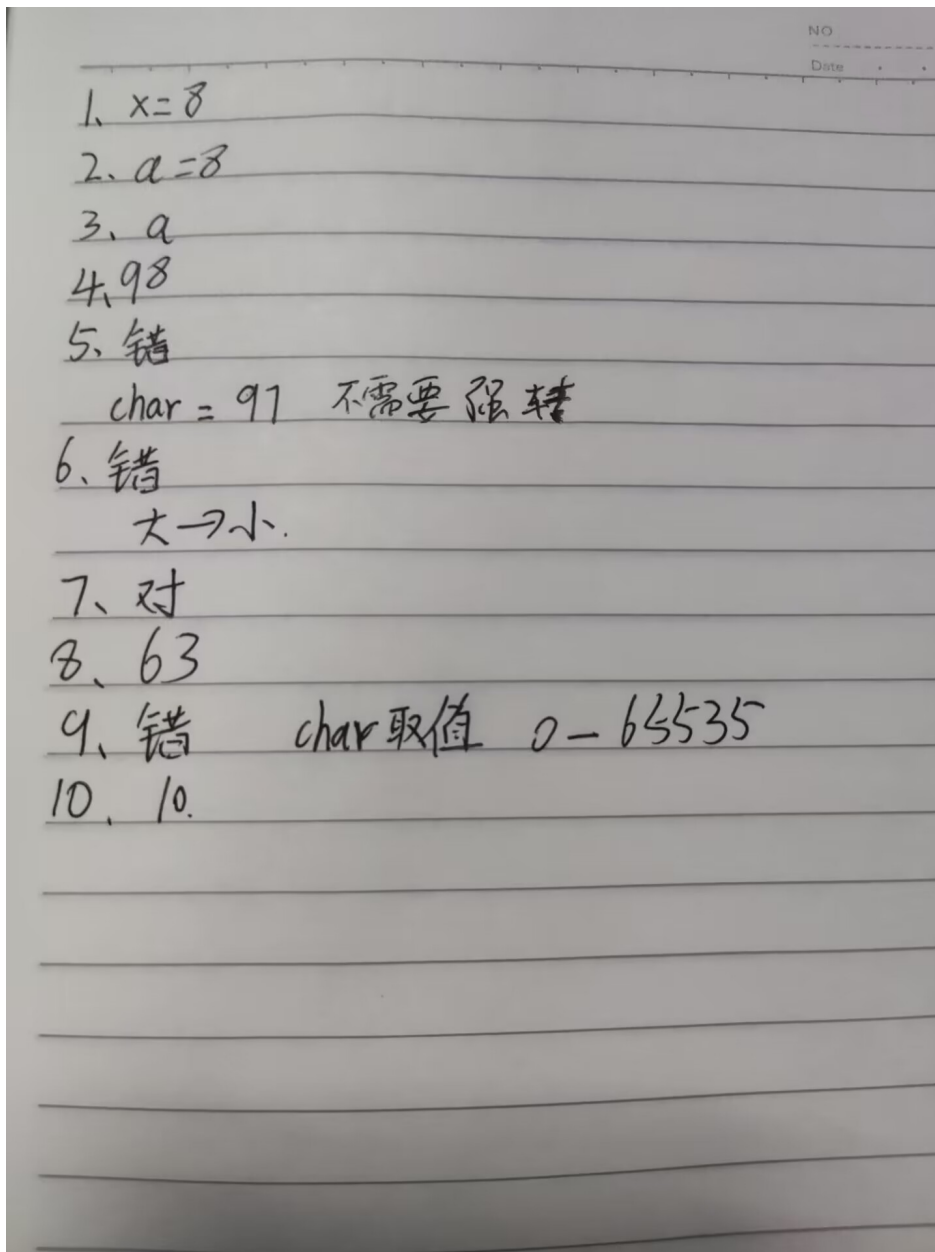 NO
Date
1、x=8
2、a=8
3、a
4、98
5、错
char = 97 不需要强转
6、错
大→小.
7、对
8、63
9、错 char取值 0-65535
10、10.